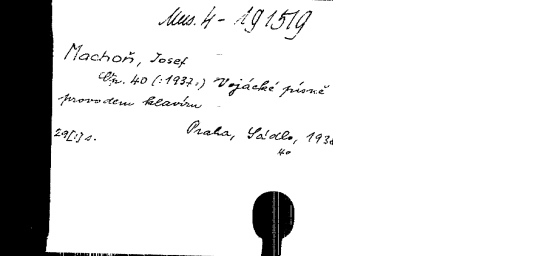 Mus. 4 - 191519
Machoň, Josef
Op. 40 (:1937:) Vojácké písně
provodem klavíru
Praha, Sádlo, 193
29[:] s.
40